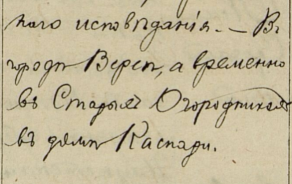 наго исповѣданія. — Въ
городѣ Вереѣ, а временно
въ Старыхъ Огородникахъ
въ домѣ Каспари.